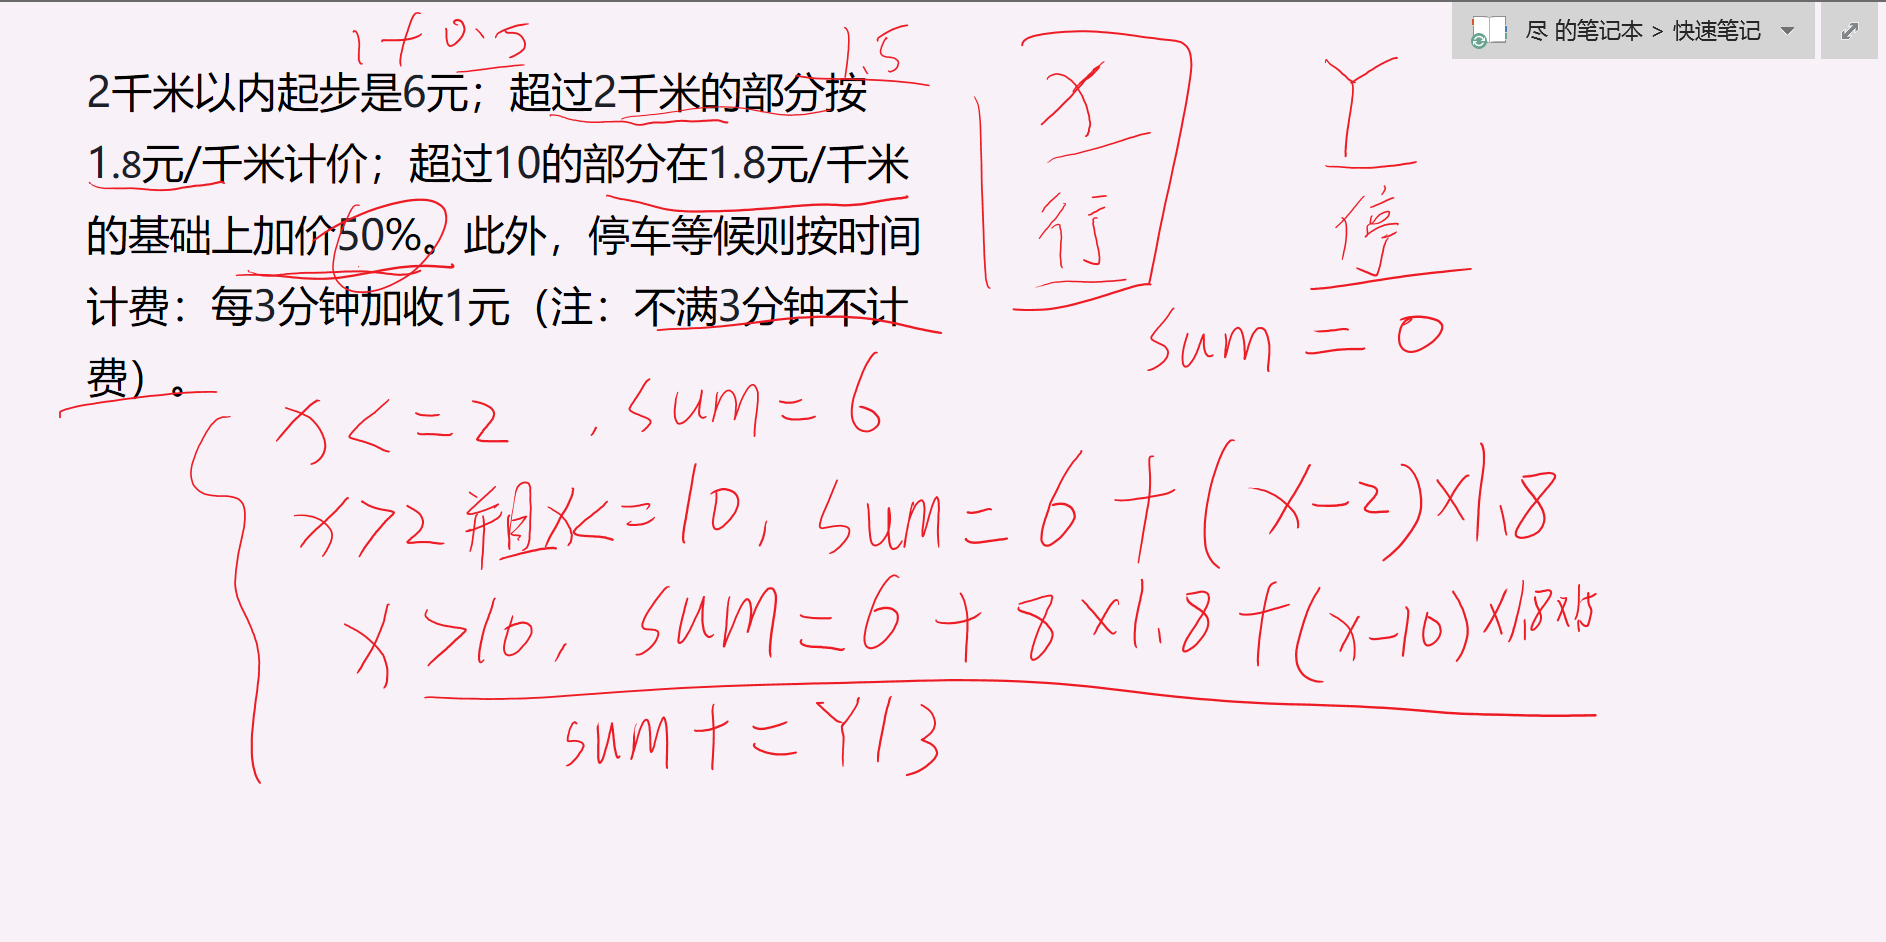 尽 的笔记本 > 快速笔记
1+0.5
1.5
2千米以内起步是6元；超过2千米的部分按
1.8元/千米计价；超过10的部分在1.8元/千米
的基础上加价50%。此外，停车等候则按时间
计费：每3分钟加收1元（注：不满3分钟不计
费）。
X Y
行 停
sum = 0
x<=2 , sum=6
x>2 并且x<=10, sum=6+(x-2)×1.8
x>10, sum=6+8×1.8+(x-10)×1.8×1.5
sum+=Y/3